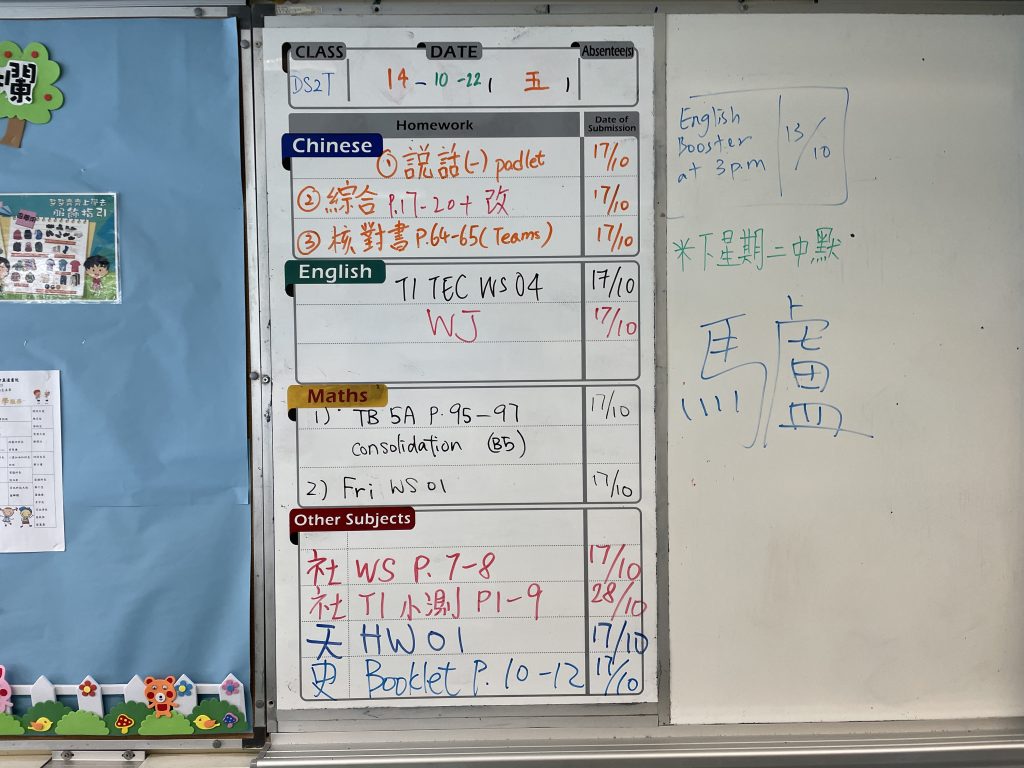 欄
服飾指引
CLASS DATE Absentee(s)
DS2T 14-10-22 ( 五 )
Homework Date of Submission
Chinese
① 説話(一) padlet 17/10
② 綜合 P.17-20+改 17/10
③ 核對書 P.64-65(Teams) 17/10
English
T1 TEC WS 04 17/10
WJ 17/10
Maths
1) TB 5A P.95-97 17/10
consolidation (B5)
2) Fri WS 01 17/10
Other Subjects
社 WS P. 7-8 17/10
社 T1 小測 P1-9 28/10
天 HW 01 17/10
史 Booklet P. 10-12 17/10
English
Booster
at 3p.m
13/10
*下星期二中默
馬盧